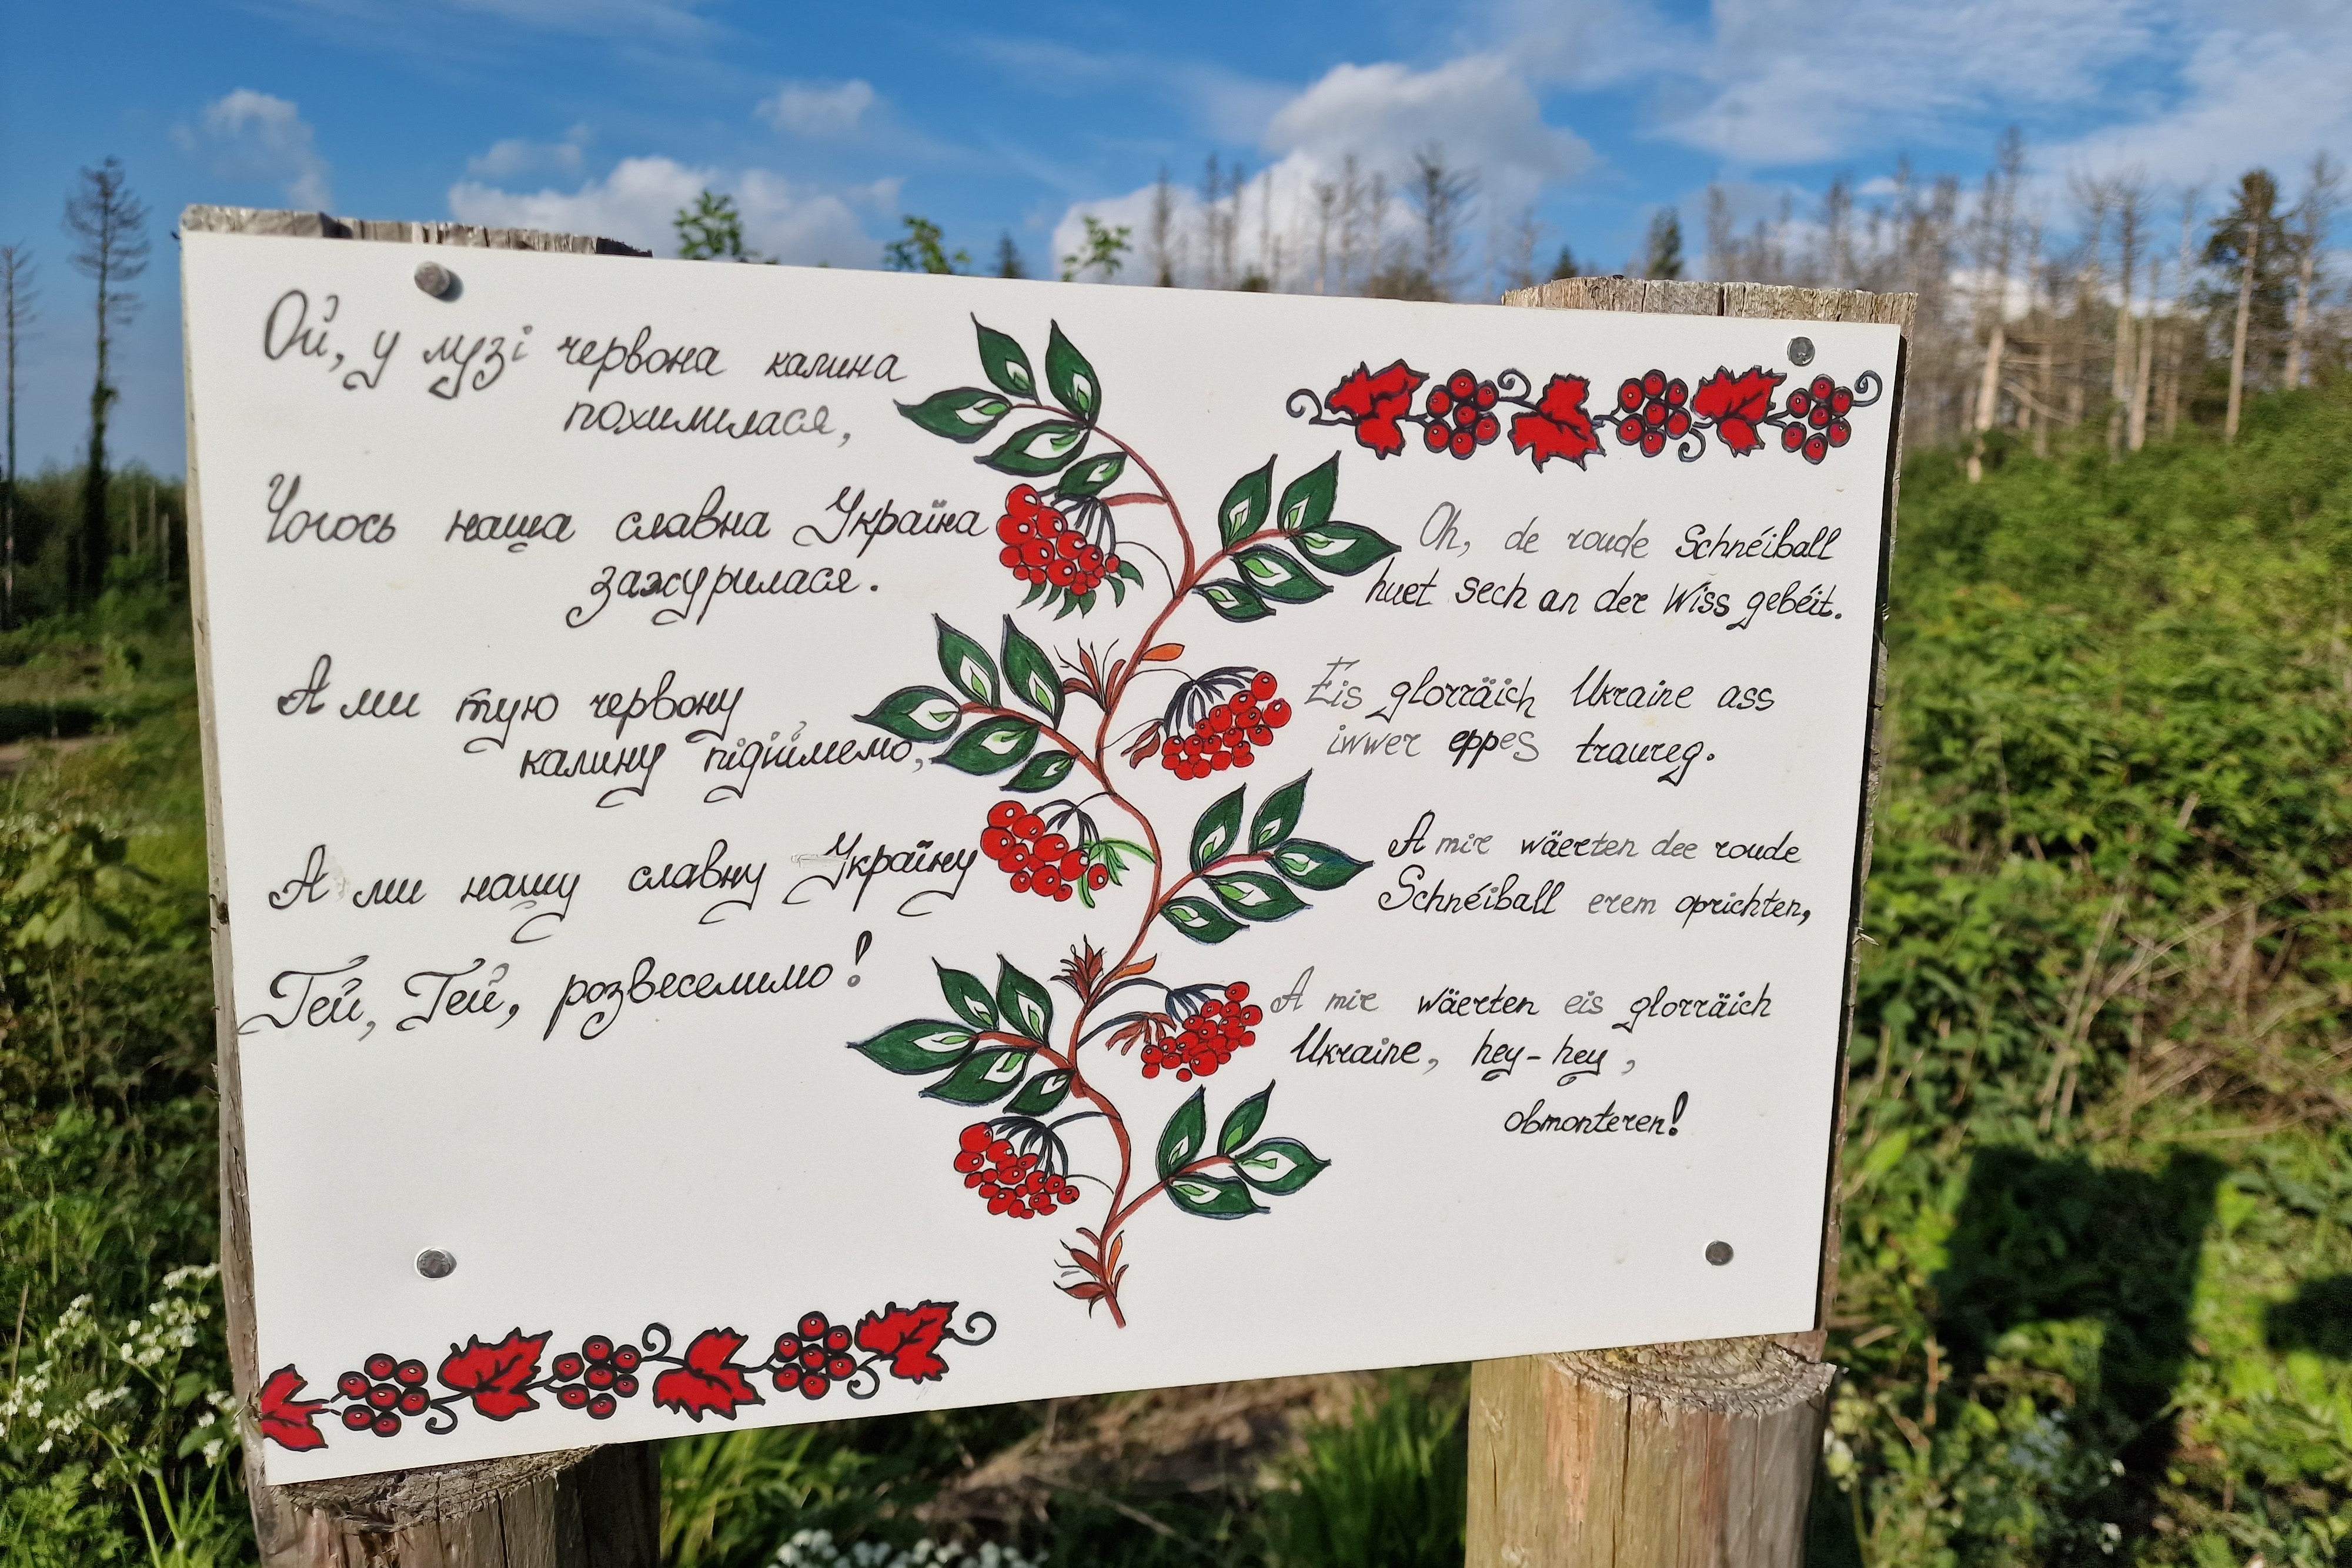 Ой, у лузі червона калина
похилилася,
Чогось наша славна Україна
зажурилася.
А ми тую червону
калину підіймемо,
А ми нашу славну Україну
Гей, Гей, розвеселимо!
Oh, de roude Schnéiball
huet sech an der Wiss gebéit.
Eis glorräich Ukraine ass
iwwer eppes traureg.
A mir wäerten dee roude
Schnéiball erem oprichten,
A mir wäerten eis glorräich
Ukraine, hey-hey,
obmonteren!